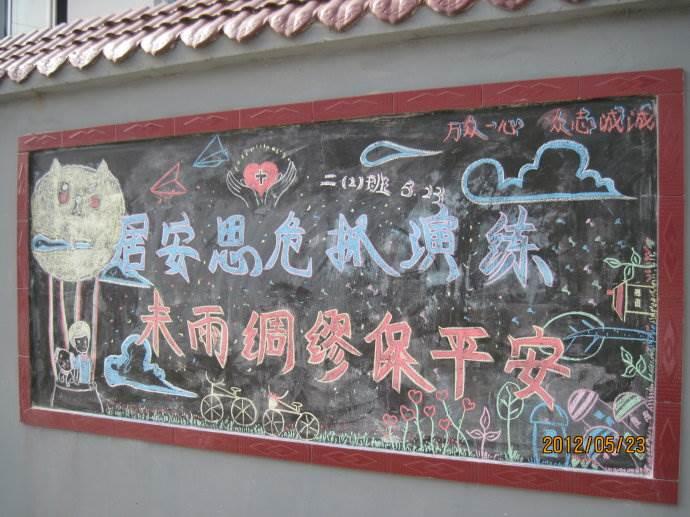 万众一心 众志成城
二(2)班 5.23
居安思危抓演练
未雨绸缪保平安
2012/05/23